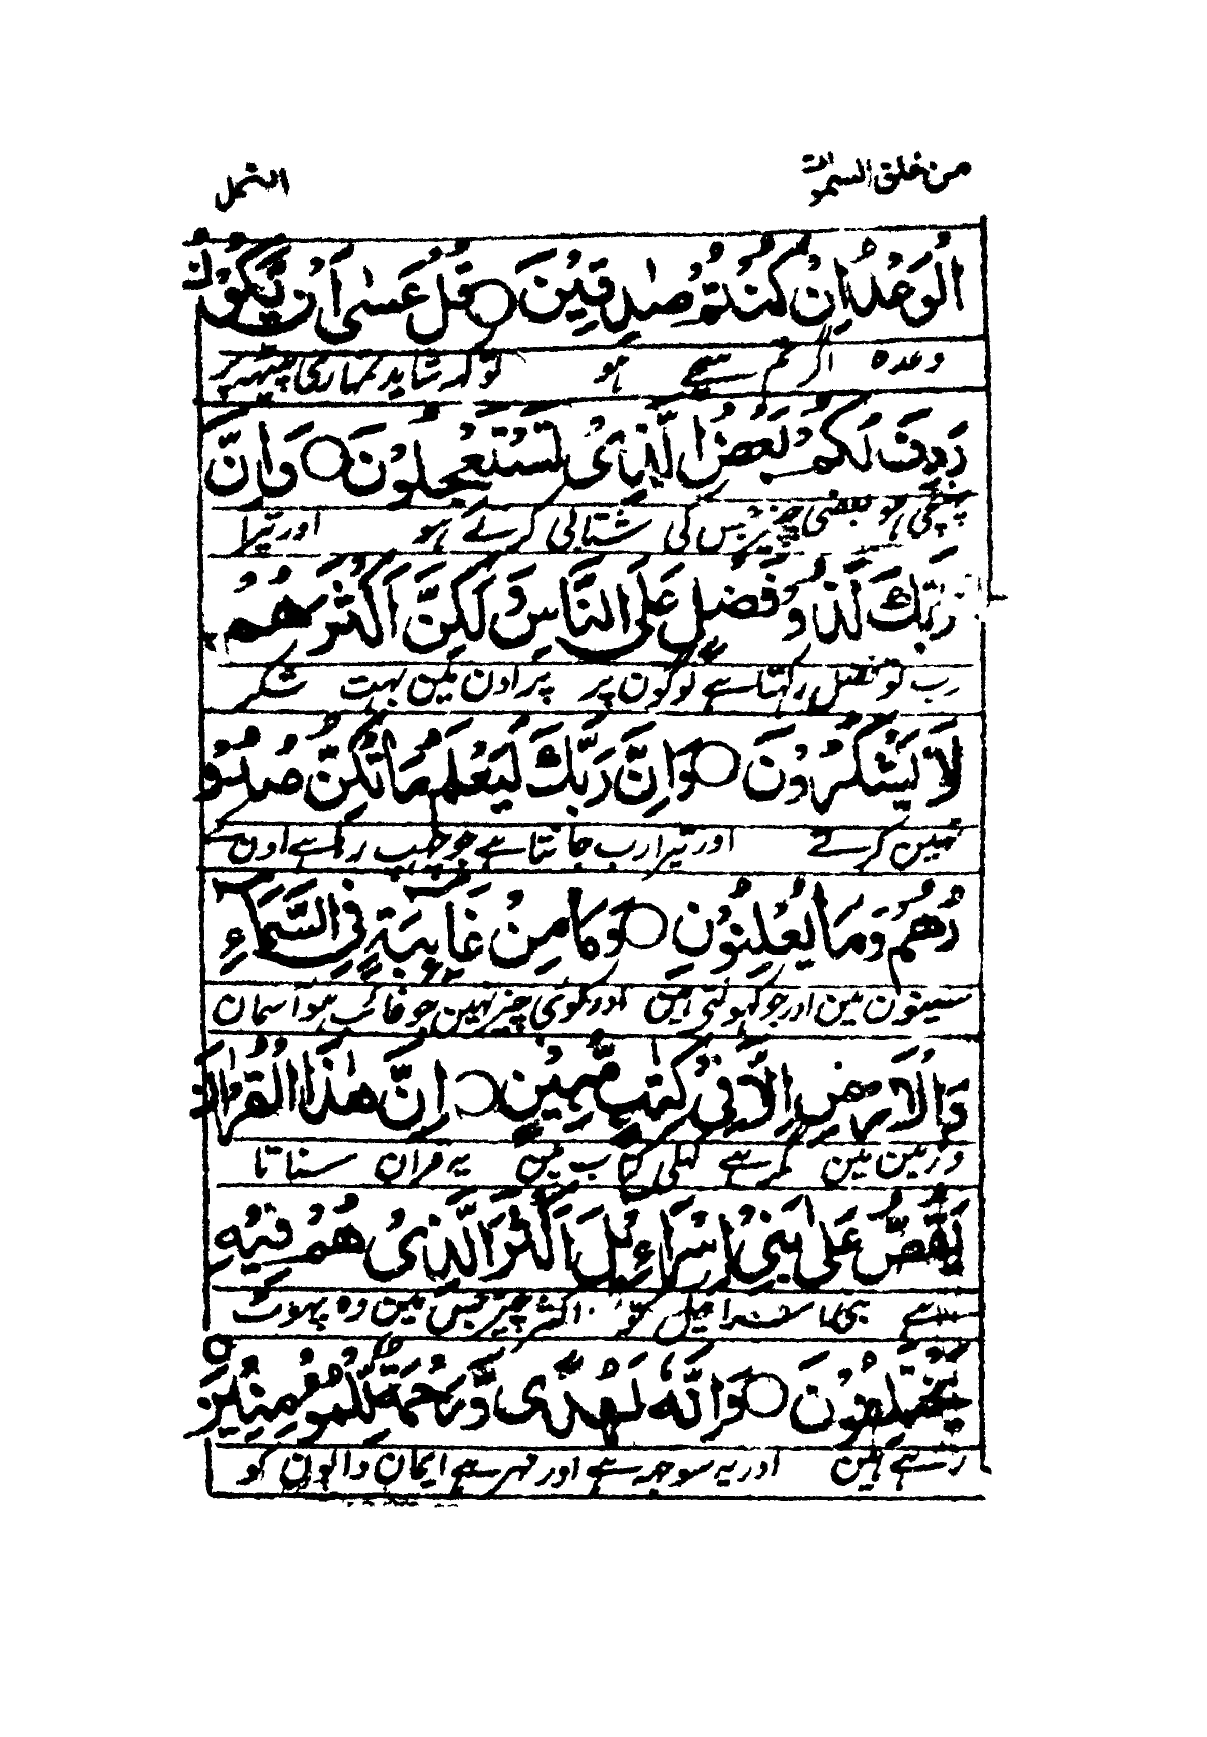 من خلق السموٰت
النمل
الْوَعْدُ اِنْ كُنْتُمْ صٰدِقِيْنَ ○ قُلْ عَسٰى اَنْ يَّكُوْنَ
وعدہ اگر تم سچے ہو تو کہہ شاید تمہاری پیٹھہ پر
رَدِفَ لَكُمْ بَعْضُ الَّذِىْ تَسْتَعْجِلُوْنَ ○ وَاِنَّ
پہنچی ہو بعضی چیز جس کی شتابی کرتے ہو اور تیرا
رَبَّكَ لَذُوْ فَضْلٍ عَلَى النَّاسِ وَلٰكِنَّ اَكْثَرَهُمْ
رب تو فضل رکہتا ہے لوگون پر پر اون مین بہت شکر
لَا يَشْكُرُوْنَ ○ وَاِنَّ رَبَّكَ لَيَعْلَمُ مَا تُكِنُّ صُدُوْ
نہین کرتے اور تیرا رب جانتا ہے جو چھپ رہا ہے اون
رُهُمْ وَمَا يُعْلِنُوْنَ ○ وَمَا مِنْ غَآئِبَةٍ فِى السَّمَآءِ
سینون مین اور جو کہولتی ہین اور کوئی چیز نہین جو غائب ہو آسمان
وَالْاَرْضِ اِلَّا فِىْ كِتٰبٍ مُّبِيْنٍ ○ اِنَّ هٰذَا الْقُرْاٰنَ
و زمین مین مگر ہے کہلی کتاب مین یہ قرآن سناتا
يَقُصُّ عَلٰى بَنِىْ اِسْرَآءِيْلَ اَكْثَرَ الَّذِىْ هُمْ فِيْهِ
ہے اکثر چیز جس مین وہ پہوٹ
يَخْتَلِفُوْنَ ○ وَاِنَّهٗ لَهُدًى وَّرَحْمَةٌ لِّلْمُؤْمِنِيْنَ
رہے ہین اور یہ سوجہہ ہے اور مہر ہے ایمان والون کو